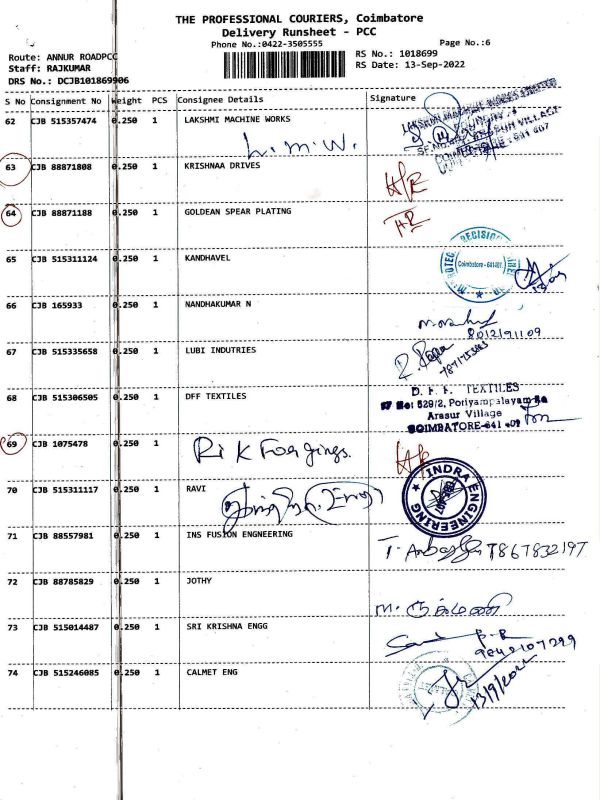 THE PROFESSIONAL COURIERS, Coimbatore
Delivery Runsheet - PCC
Phone No.:0422-3505555
Page No.:6
Route: ANNUR ROADPCC
RS No.: 1018699
Staff: RAJKUMAR
RS Date: 13-Sep-2022
DRS No.: DCJB101869906
S No Consignment No Weight PCS Consignee Details Signature
62 CJB 515357474 0.250 1 LAKSHMI MACHINE WORKS
L.M.W.
COIMBATORE - 641 607
63 CJB 88871808 0.250 1 KRISHNAA DRIVES
64 CJB 88871188 0.250 1 GOLDEAN SPEAR PLATING
65 CJB 515311124 0.250 1 KANDHAVEL
Coimbatore - 641407
66 CJB 165933 0.250 1 NANDHAKUMAR N
8012191109
67 CJB 515335658 0.250 1 LUBI INDUTRIES
68 CJB 515306505 0.250 1 DFF TEXTILES
D. F. F. TEXTILES
529/2, Poriyampalayam
Arasur Village
COIMBATORE-641 407
69 CJB 1075478 0.250 1
RiK Forgings.
70 CJB 515311117 0.250 1 RAVI
INDRA ENGINEERING
71 CJB 88557981 0.250 1 INS FUSION ENGNEERING
72 CJB 88785829 0.250 1 JOTHY
73 CJB 515014487 0.250 1 SRI KRISHNA ENGG
74 CJB 515246085 0.250 1 CALMET ENG
13/9/2022